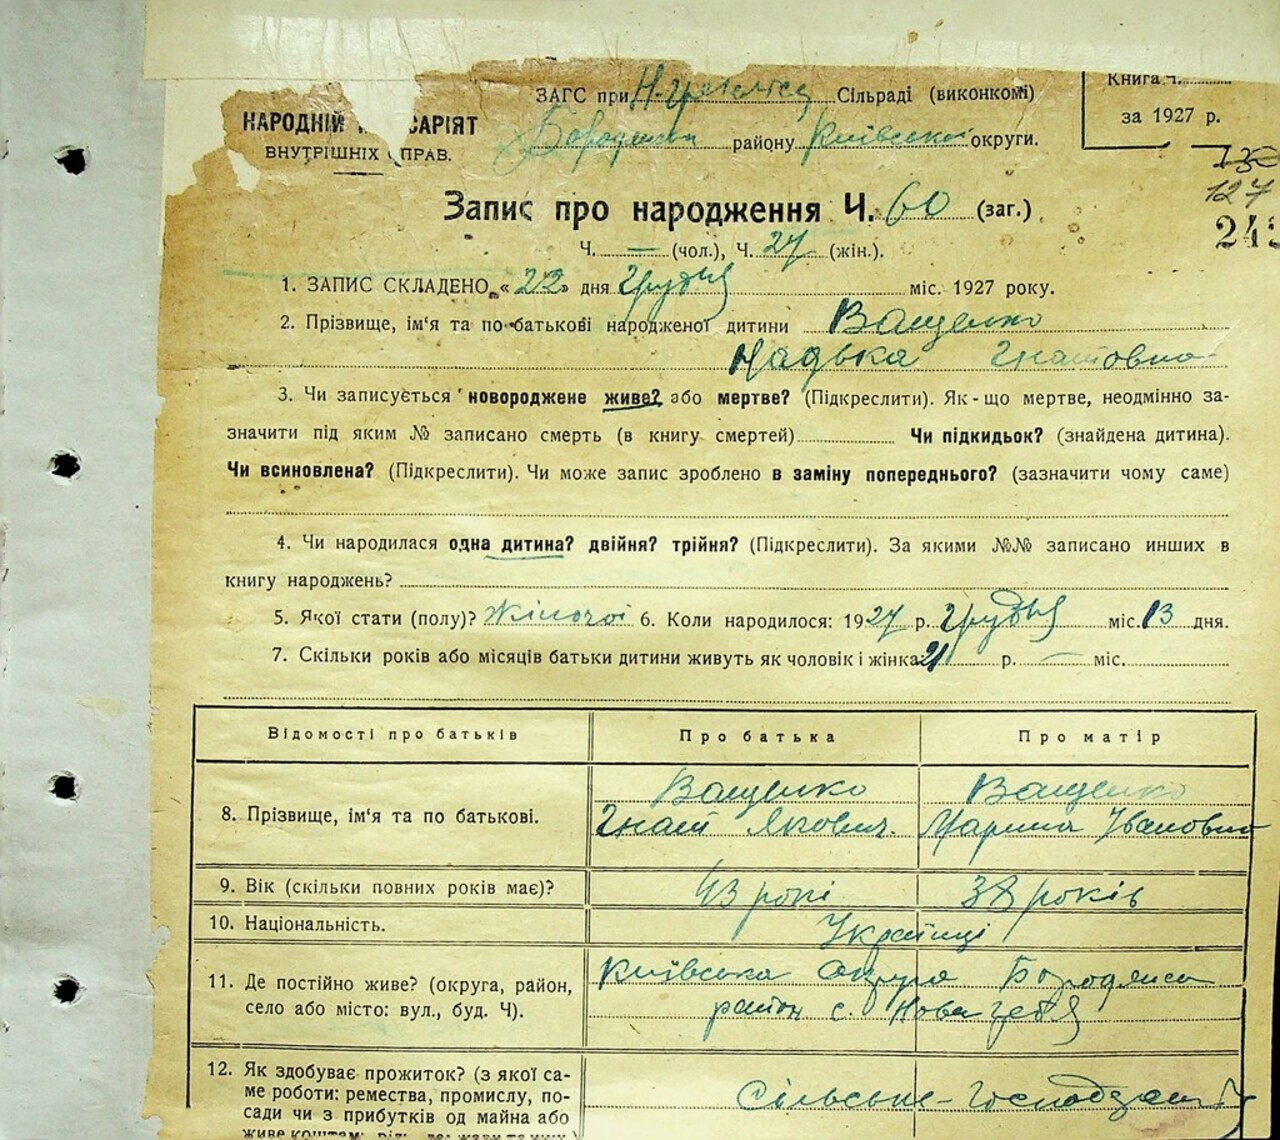 Книга Ч.
за 1927 р.
ЗАГС при Н-Гребельск Сільраді (виконкомі)
НАРОДНІЙ САРІЯТ
Бородянськ району Київської округи.
ВНУТРІШНІХ СПРАВ.
130
127
243
Запис про народження Ч. 60 (заг.)
Ч. — (чол.), Ч. 27 (жін.).
1. ЗАПИС СКЛАДЕНО „«22» дня Грудня міс. 1927 року.
2. Прізвище, ім‘я та по батькові народженої дитини Ващенко
Надька Гнатовна
3. Чи записується новороджене живе? або мертве? (Підкреслити). Як-що мертве, неодмінно за-
значити під яким № записано смерть (в книгу смертей) Чи підкидьок? (знайдена дитина).
Чи всиновлена? (Підкреслити). Чи може запис зроблено в заміну попереднього? (зазначити чому саме)
4. Чи народилася одна дитина? двійня? трійня? (Підкреслити). За якими №№ записано инших в
книгу народжень?
5. Якої стати (полу)? Жіночої 6. Коли народилося: 1927 р. Грудня міс. 13 дня.
7. Скільки років або місяців батьки дитини живуть як чоловік і жінка 21 р. — міс.
Відомості про батьків Про батька Про матір
8. Прізвище, ім‘я та по батькові. Ващенко Гнат Якович. Ващенко Марина Івановна
9. Вік (скільки повних років має)? 43 рокі 38 років
10. Національність. Українці
11. Де постійно живе? (округа, район, Київська округа Бородянск
село або місто: вул., буд. Ч). район с. Нова Гребля
12. Як здобуває прожиток? (з якої са-
ме роботи: ремества, промислу, по- Сільське-Господарство
сади чи з прибутків од майна або
живе коштам